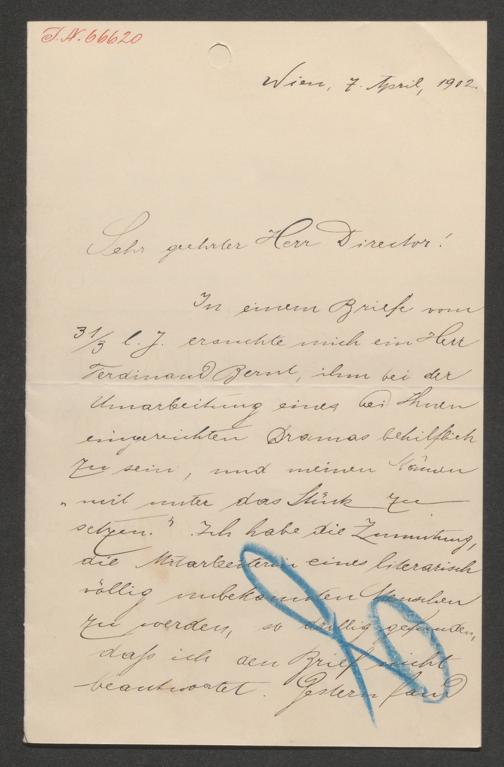 I.N. 66620
Wien, 7. April, 1902.
Sehr geehrter Herr Director!
In einem Briefe vom
31/3 l. J. ersuchte mich ein Herr
Ferdinand Bernt, ihm bei der
Umarbeitung eines bei Ihnen
eingereichten Dramas behilflich
zu sein, und meinen Namen
„mit unter das Stück zu
setzen." Ich habe die Zumutung,
die Mitarbeiterin eines literarisch
völlig unbekannten Menschen
zu werden, so drollig gefunden,
daß ich den Brief nicht
beantwortet. Gestern fand